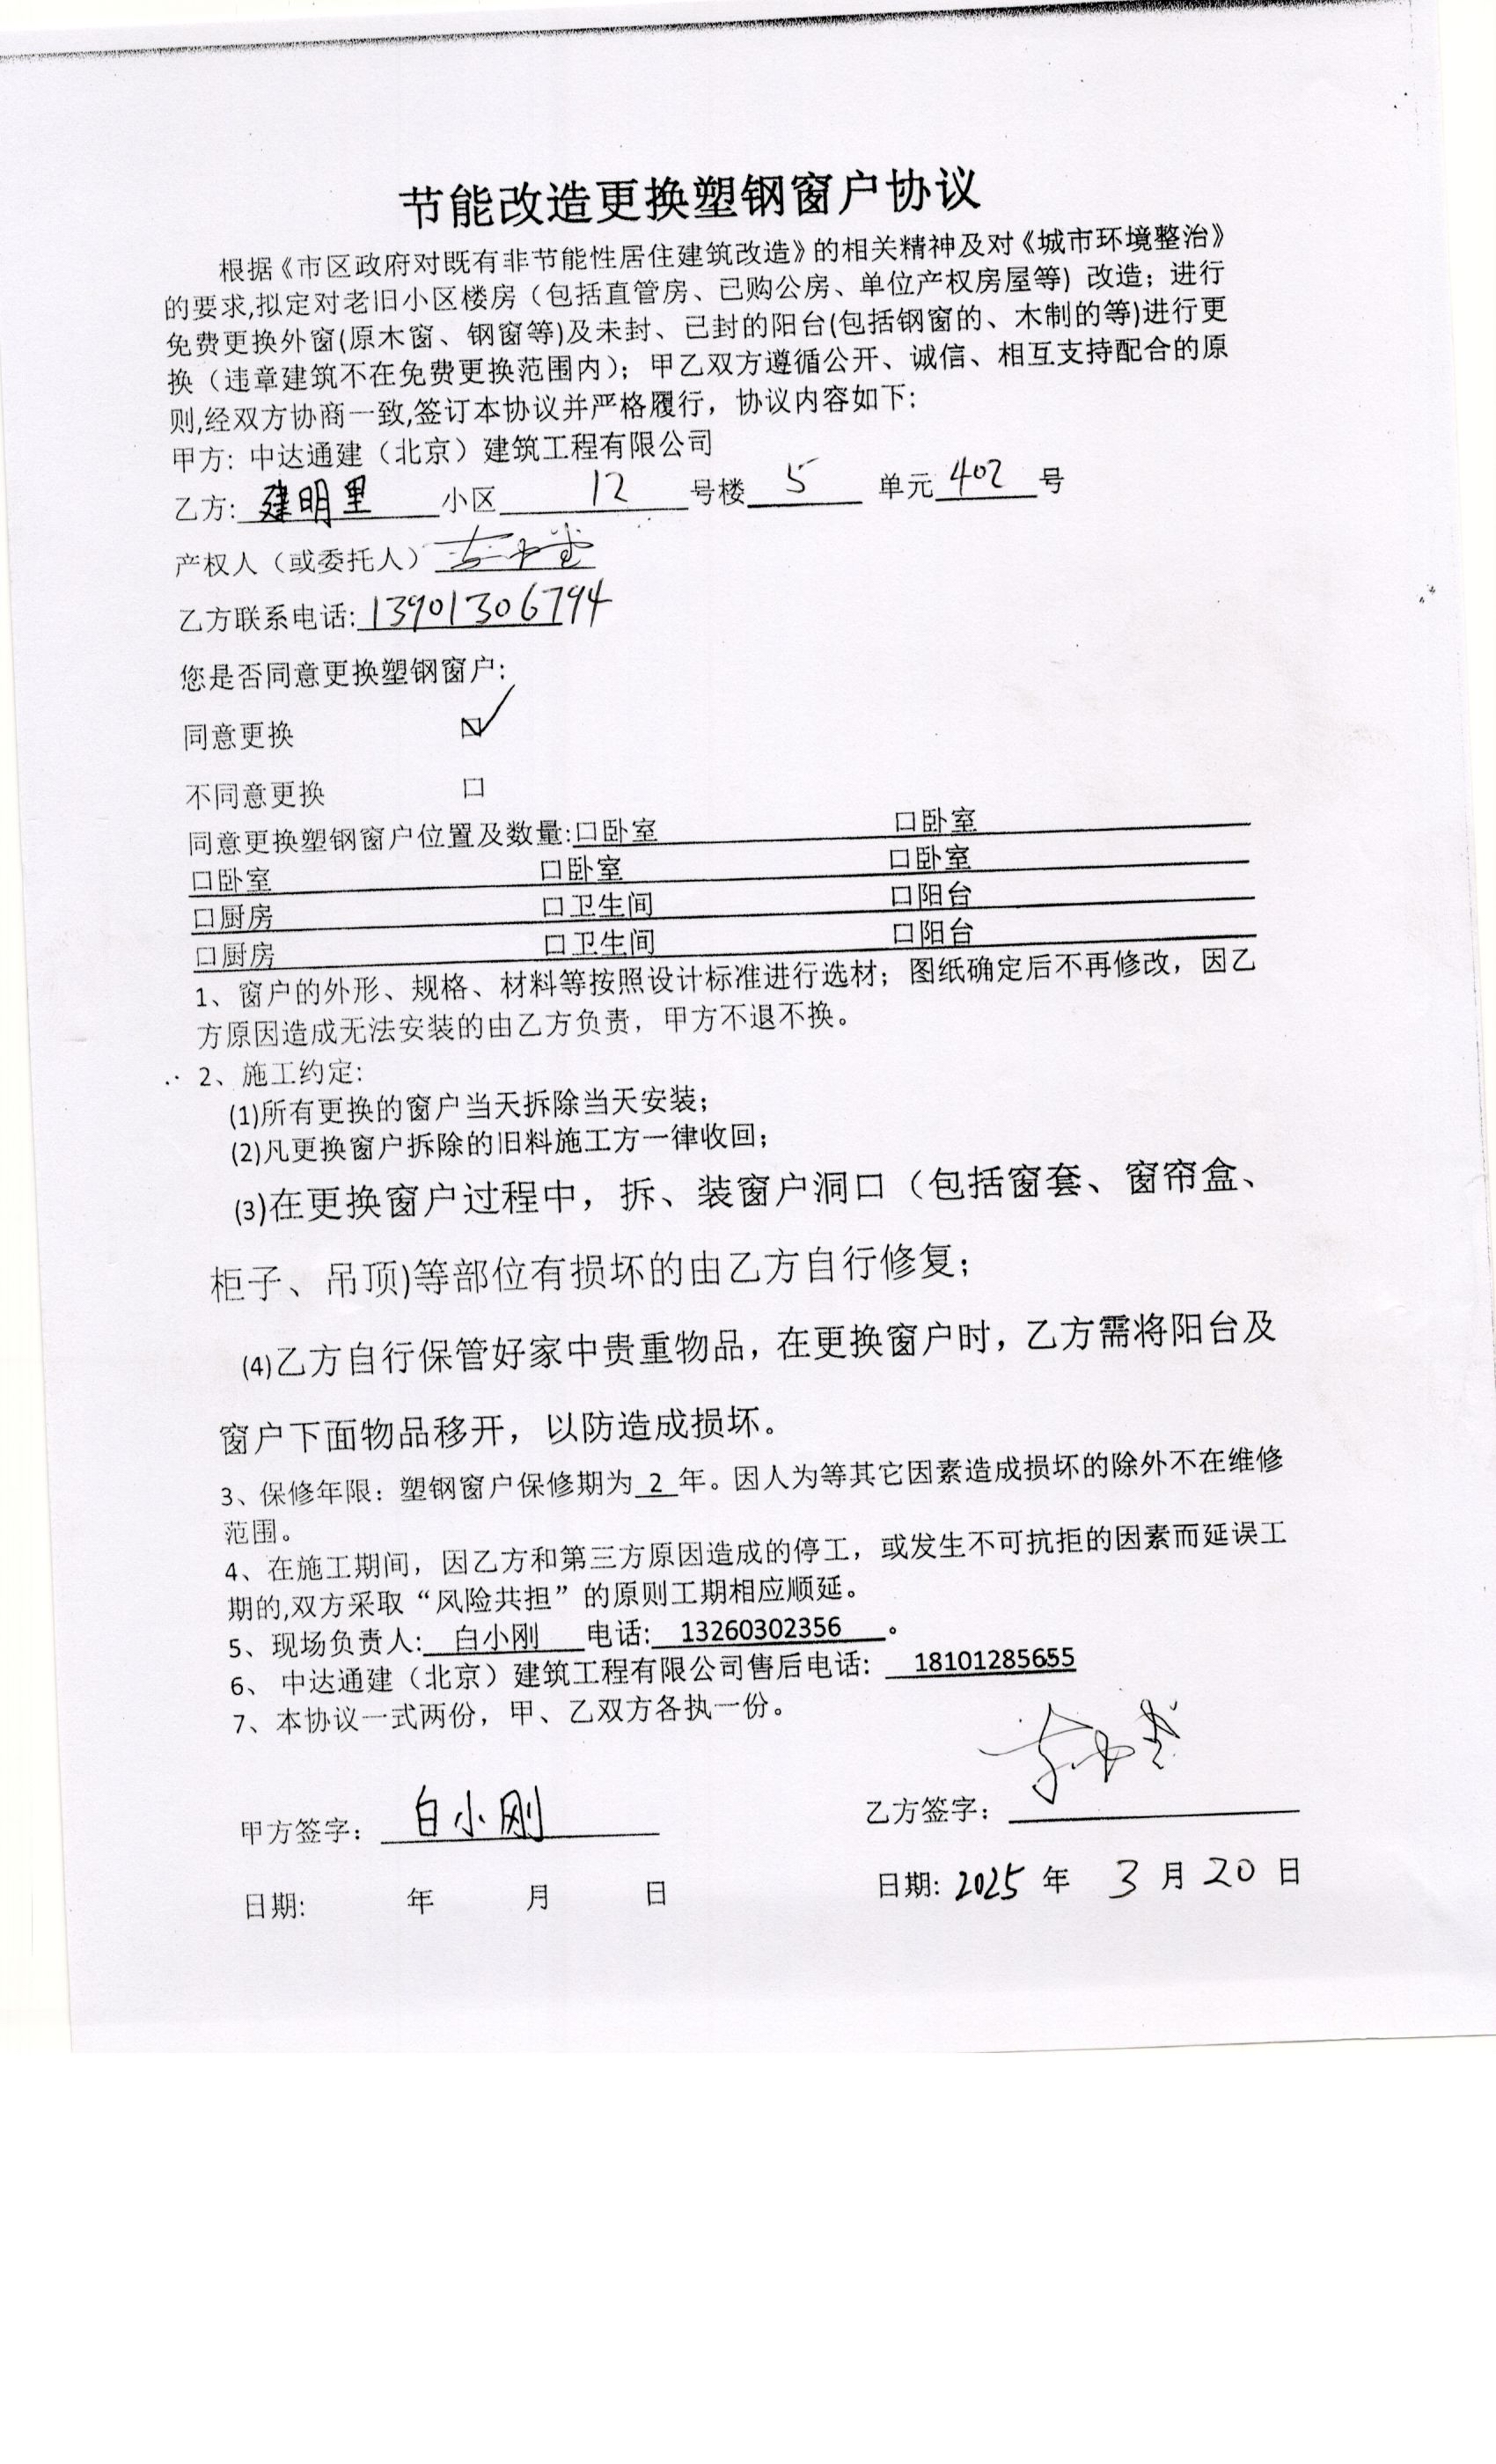 节能改造更换塑钢窗户协议
根据《市区政府对既有非节能性居住建筑改造》的相关精神及对《城市环境整治》
的要求,拟定对老旧小区楼房（包括直管房、已购公房、单位产权房屋等）改造；进行
免费更换外窗(原木窗、钢窗等)及未封、已封的阳台(包括钢窗的、木制的等)进行更
换（违章建筑不在免费更换范围内）；甲乙双方遵循公开、诚信、相互支持配合的原
则,经双方协商一致,签订本协议并严格履行，协议内容如下：
甲方：中达通建（北京）建筑工程有限公司
乙方: 建明里 小区 12 号楼 5 单元 402 号
产权人（或委托人）
乙方联系电话: 13901306794
您是否同意更换塑钢窗户：
同意更换 ☑
不同意更换 口
同意更换塑钢窗户位置及数量:口卧室 口卧室
口卧室 口卧室 口卧室
口厨房 口卫生间 口阳台
口厨房 口卫生间 口阳台
1、窗户的外形、规格、材料等按照设计标准进行选材；图纸确定后不再修改，因乙
方原因造成无法安装的由乙方负责，甲方不退不换。
2、施工约定:
(1)所有更换的窗户当天拆除当天安装；
(2)凡更换窗户拆除的旧料施工方一律收回；
(3)在更换窗户过程中，拆、装窗户洞口（包括窗套、窗帘盒、
柜子、吊顶)等部位有损坏的由乙方自行修复；
(4)乙方自行保管好家中贵重物品，在更换窗户时，乙方需将阳台及
窗户下面物品移开，以防造成损坏。
3、保修年限：塑钢窗户保修期为 2 年。因人为等其它因素造成损坏的除外不在维修
范围。
4、在施工期间，因乙方和第三方原因造成的停工，或发生不可抗拒的因素而延误工
期的,双方采取“风险共担”的原则工期相应顺延。
5、现场负责人: 白小刚 电话: 13260302356 。
6、 中达通建（北京）建筑工程有限公司售后电话: 18101285655
7、本协议一式两份，甲、乙双方各执一份。
甲方签字： 白小刚 乙方签字：
日期: 年 月 日 日期: 2025 年 3 月 20 日